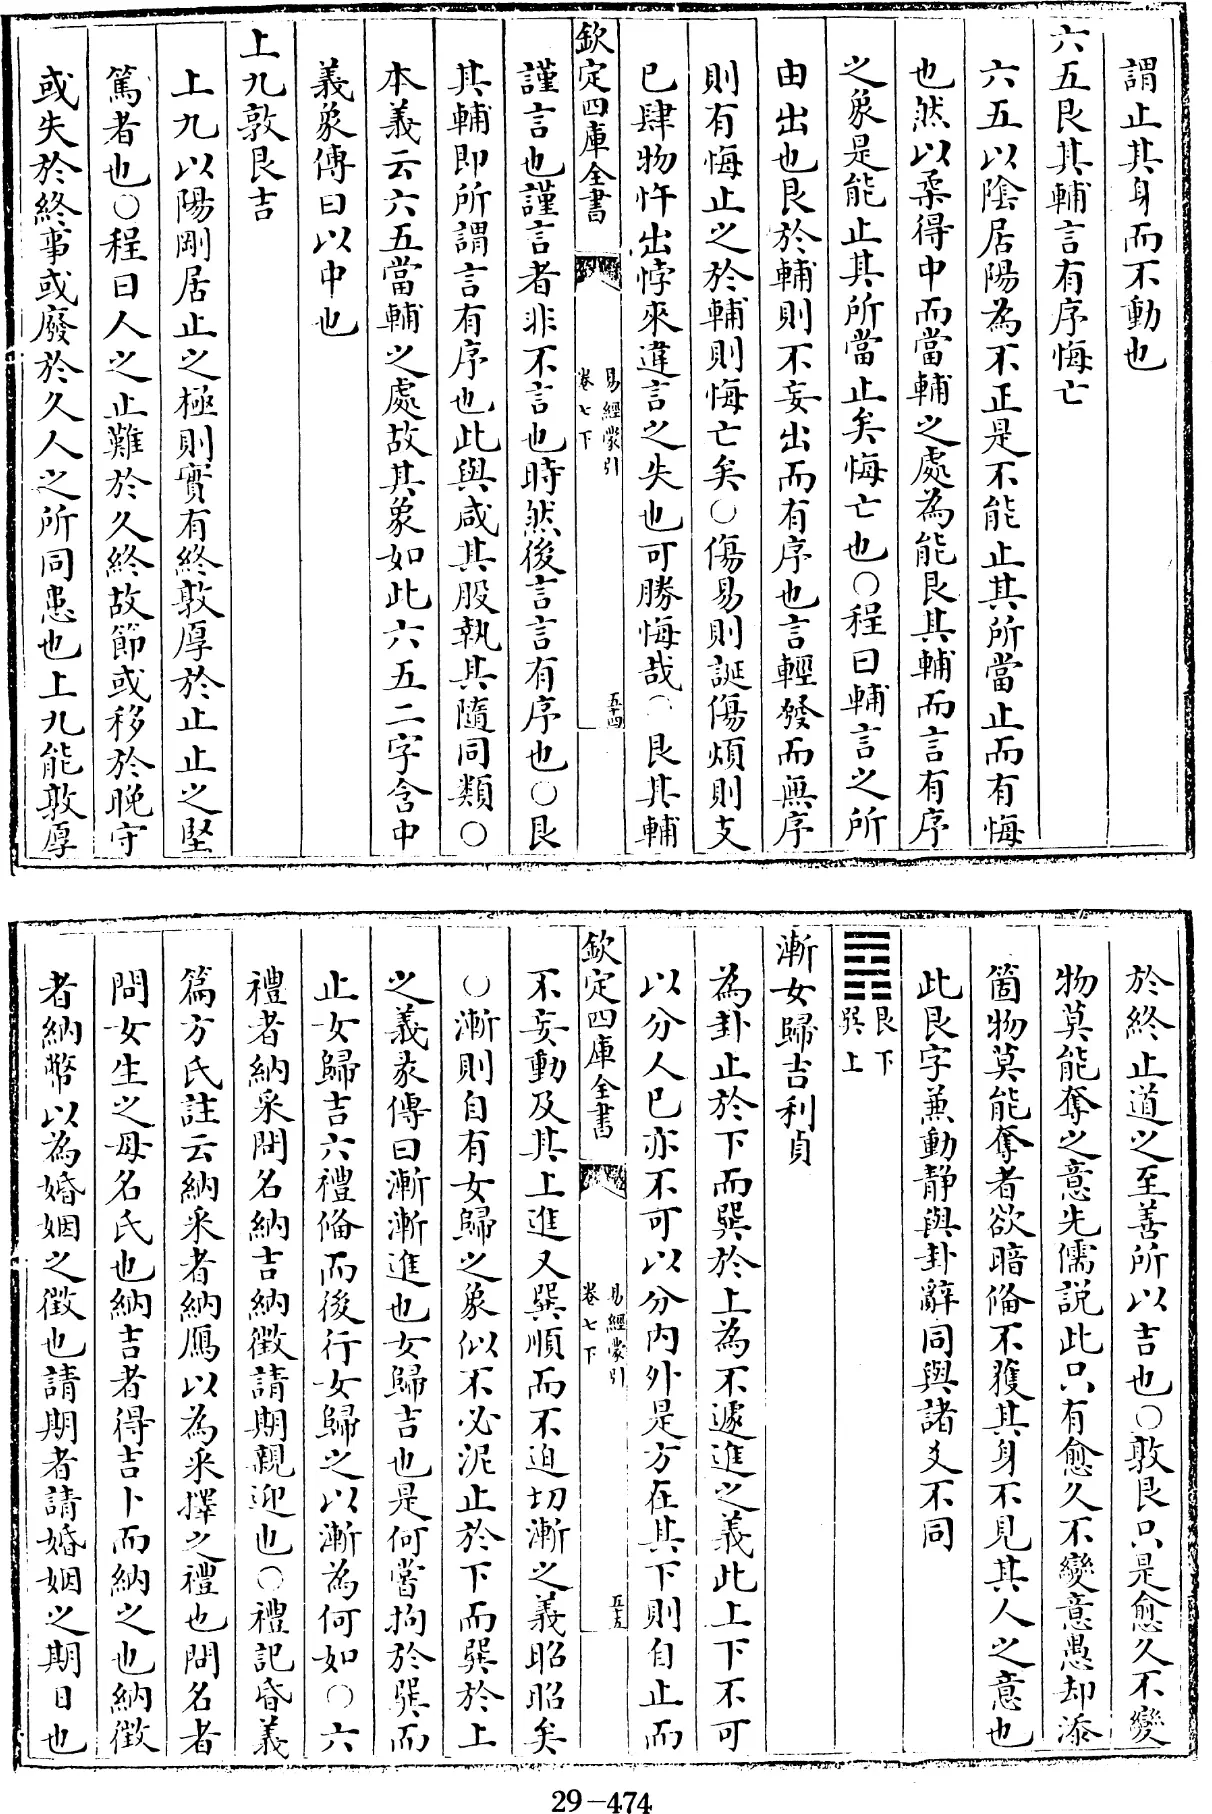 謂止其身而不動也
六五艮其輔言有序悔亡
六五以陰居陽為不正是不能止其所當止而有悔
也然以柔得中而當輔之處為能艮其輔而言有序
之象是能止其所當止矣悔亡也○程曰輔言之所
由出也艮於輔則不妄出而有序也言輕發而無序
則有悔止之於輔則悔亡矣○傷易則誕傷煩則支
已肆物忤出悖來違言之失也可勝悔哉○艮其輔
欽定四庫全書
易經蒙引
卷七下
五十四
謹言也謹言者非不言也時然後言言有序也○艮
其輔即所謂言有序也此與咸其股執其隨同類○
本義云六五當輔之處故其象如此六五二字含中
義象傳曰以中也
上九敦艮吉
上九以陽剛居止之極則實有終敦厚於止止之堅
篤者也○程曰人之止難於久終故節或移於晚守
或失於終事或廢於久人之所同患也上九能敦厚
於終止道之至善所以吉也○敦艮只是愈久不變
物莫能奪之意先儒說此只有愈久不變意愚却添
箇物莫能奪者欲暗偹不獲其身不見其人之意也
此艮字兼動静與卦辭同與諸爻不同
艮下
巽上
漸女歸吉利貞
為卦止於下而巽於上為不遽進之義此上下不可
以分人已亦不可以分内外是方在其下則自止而
欽定四庫全書
易經蒙引
卷七下
五十五
不妄動及其上進又巽順而不迫切漸之義昭昭矣
○漸則自有女歸之象似不必泥止於下而巽於上
之義彖傳曰漸漸進也女歸吉也是何嘗拘於巽而
止女歸吉六禮偹而後行女歸之以漸為何如○六
禮者納采問名納吉納徵請期親迎也○禮記昏義
篇方氏註云納采者納鴈以為采擇之禮也問名者
問女生之母名氏也納吉者得吉卜而納之也納徵
者納幣以為婚姻之徵也請期者請婚姻之期日也
29-474